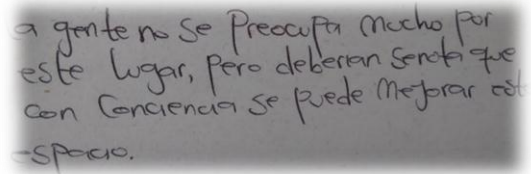 a gente no se Preocupa mucho por
este lugar, pero deberian que
con Conciencia se puede mejorar est
espacio.